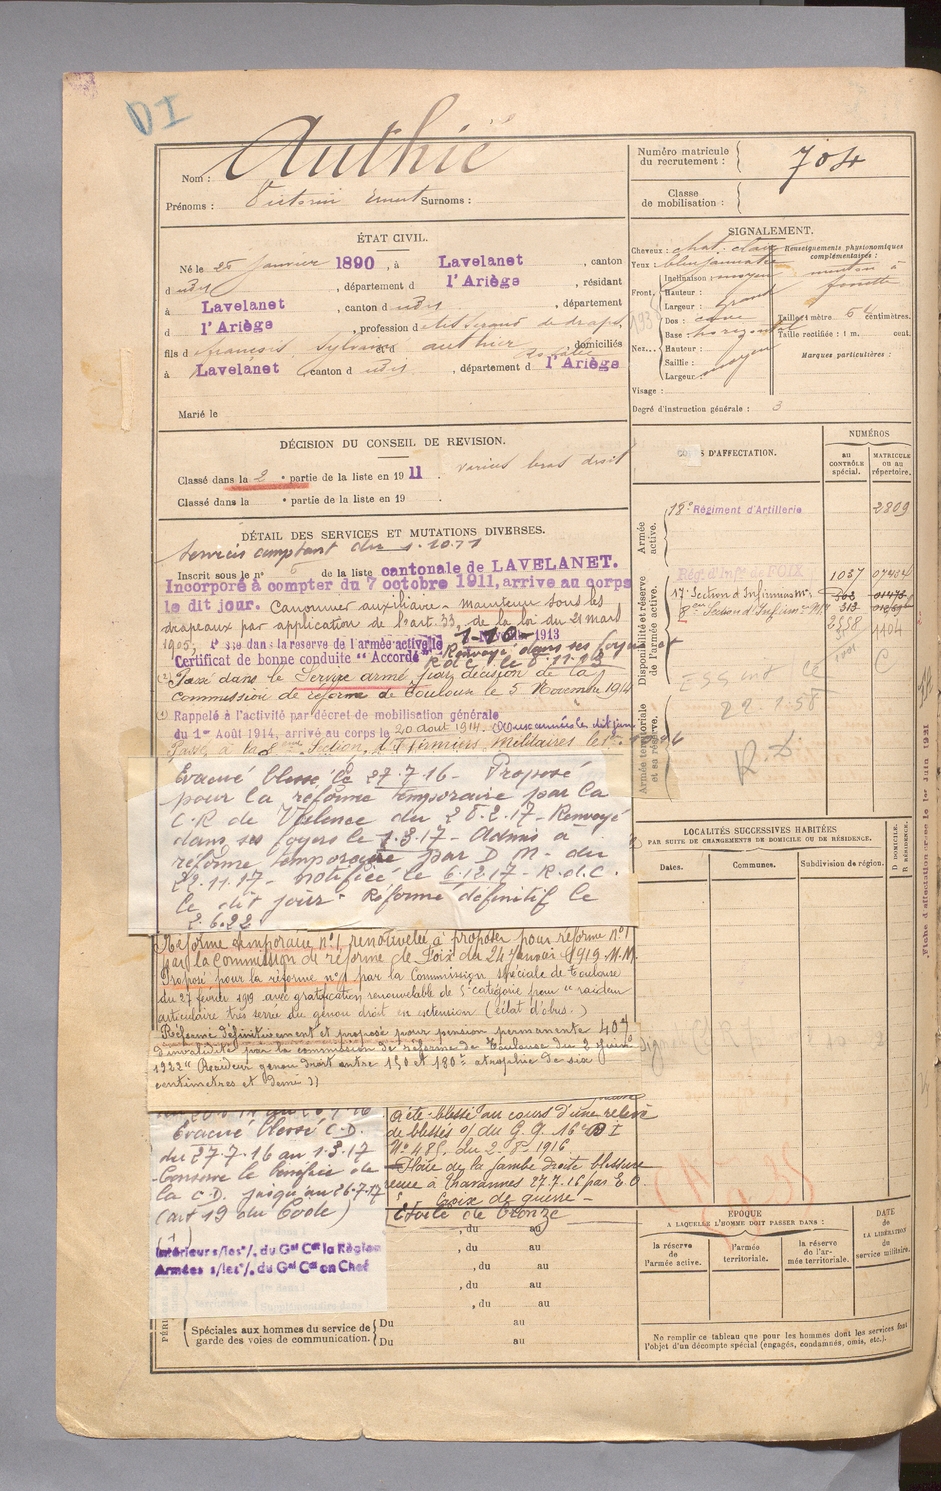 DI
Nom : Authié
Prénoms : Victorin Ernest Surnoms :
Numéro matricule du recrutement : 704
Classe de mobilisation :
ÉTAT CIVIL.
Né le 25 janvier 1890, à Lavelanet, canton
d udit, département d l'Ariège, résidant
à Lavelanet, canton d udit, département
d l'Ariège, profession de tisserand de draps,
fils de françois, Sylvain authier domiciliés
à Lavelanet, canton d udit, département d l'Ariège
Marié le
SIGNALEMENT.
Cheveux : chat. clair
Yeux :
Front. Inclinaison : moyen
Hauteur :
Largeur : grand
Nez. Dos : cave
Base : horizontal
Hauteur :
Saillie :
Largeur : moyen
Visage :
Renseignements physionomiques complémentaires :
menton à fossette
Taille : 1 mètre 64 centimètres.
Taille rectifiée : 1 m. cent.
Marques particulières :
Degré d'instruction générale : 3
DÉCISION DU CONSEIL DE REVISION.
Classé dans la 2e partie de la liste en 1911 varices bras droit
Classé dans la e partie de la liste en 19
DÉTAIL DES SERVICES ET MUTATIONS DIVERSES.
Services comptant du 1.10.11
Inscrit sous le n° 6 de la liste cantonale de LAVELANET.
Incorporé à compter du 7 octobre 1911, arrivé au corps
le dit jour. Canonnier auxiliaire. maintenu sous les
drapeaux par application de l'art. 33, de la loi du 21 mars
1905, Passé dans la réserve de l'armée active le 1-10- 1913
Certificat de bonne conduite "Accordé" Renvoyé dans ses foyers et
R.d.C. le 8.11.13
(2) Passé dans le Service armé par décision de la
Commission de réforme de Toulouse le 5 Novembre 1914
(1) Rappelé à l'activité par décret de mobilisation générale
du 1er Août 1914, arrivé au corps le 20 aout 1914.
Passé à la 8ème Section d'Infirmiers Militaires le 1er
Evacué blessé le 27.7.16 - Proposé
pour la réforme temporaire par la
C.R. de Valence du 28.2.17 - Renvoyé
dans ses foyers le 1.3.17 - Admis à
réforme temporaire par D.M. du
22.11.17 - notifiée le 6.12.17 - R.d.C.
le dit jour - Réformé définitif le
2.6.22.
Réforme temporaire n°1 renouvelée à proposer pour réforme n°1
par la Commission de réforme de Foix du 24 Janvier 1919
Proposé pour la réforme n°1 par la Commission spéciale de Toulouse
du 27 février 1919 avec gratification renouvelable de 5e catégorie pour "raideur
articulaire très serrée du genou droit en extension (éclat d'obus.)
Réformé définitivement et proposé pour pension permanente 40%
d'invalidité par la commission de réforme de Toulouse du 2 juin
1922 "Raideur genou droit entre 150 et 180° atrophie de six
centimètres et demi"
Evacué blessé C.D.
du 27-7.16 au 1.3.17
Conserve le bénéfice de
la C.D. jusqu'au 26-7-17
(art 19 du Code)
(1)
Intérieur s/les o/. du Gal Ct la Région
Armées s/les o/. du Gal Ct en Chef
A été blessé au cours d'une relève
de blessés o/ du G.Q. 16e D I
N° 485. du 2-8-1916.
Plaie de la jambe droite blessure
reçue à Tharannes 27.7.16 par E.O.
Croix de guerre -
Etoile de bronze
, du au
, du au
, du au
, du au
, du au
Spéciales aux hommes du service de garde des voies de communication. Du au
Du au
CORPS D'AFFECTATION.
NUMÉROS
au CONTRÔLE spécial.
MATRICULE ou au répertoire.
Armée active.
18e Régiment d'Artillerie 2809
Disponibilité et réserve de l'armée active.
Régt d'Infie de FOIX 1037
17e Section d'Infirmiers Mres
8ème Section d'Infirm. M. 313
2558 1104
Armée territoriale et sa réserve.
R.D
LOCALITÉS SUCCESSIVES HABITÉES
PAR SUITE DE CHANGEMENTS DE DOMICILE OU DE RÉSIDENCE.
Dates. Communes. Subdivision de région. D DOMICILE. R RÉSIDENCE.
ÉPOQUE
A LAQUELLE L'HOMME DOIT PASSER DANS :
la réserve de l'armée active. l'armée territoriale. la réserve de l'armée territoriale.
DATE de LA LIBÉRATION du service militaire.
Ne remplir ce tableau que pour les hommes dont les services font
l'objet d'un décompte spécial (engagés, condamnés, omis, etc.).